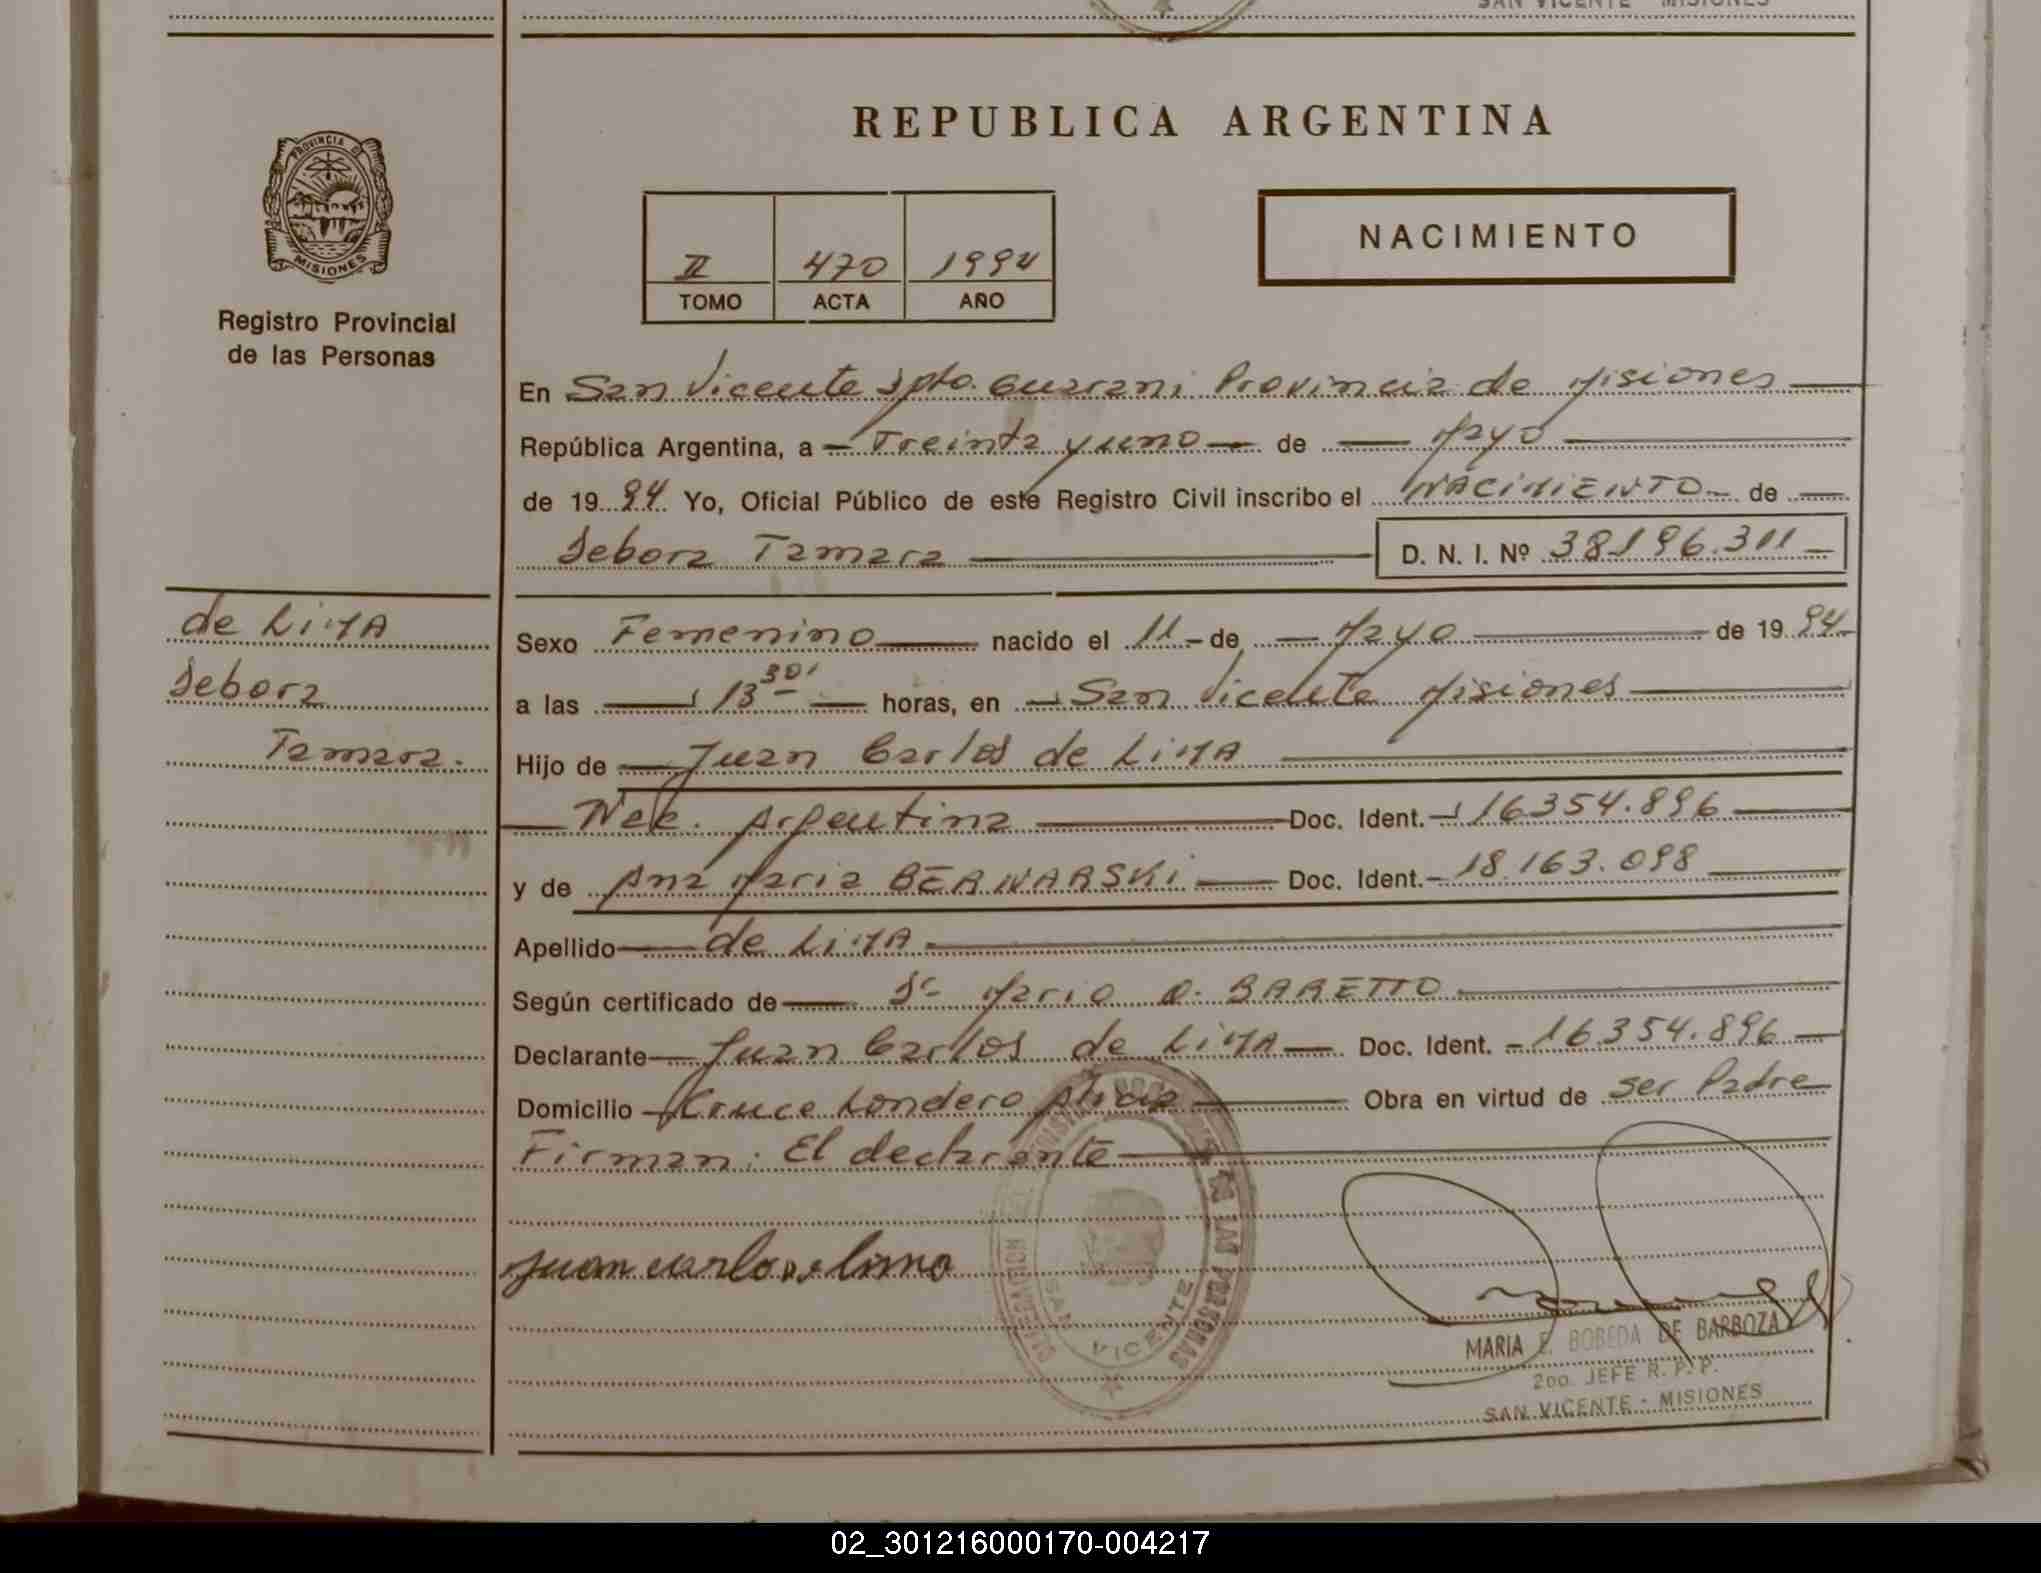 SAN VICENTE - MISIONES
REPUBLICA ARGENTINA
PROVINCIA DE
MISIONES
Registro Provincial
de las Personas
NACIMIENTO
II 470 1994
TOMO ACTA AÑO
En San Vicente Dpto. Guarani Provincia de Misiones
República Argentina, a - Treinta y uno - de - Mayo
de 1994 Yo, Oficial Público de este Registro Civil inscribo el NACIMIENTO - de
Debora Tamara D. N. I. Nº 38196.311
de LiMA
Debora
Tamara.
Sexo Femenino nacido el 11 - de - Mayo de 1994
a las 13 30' horas, en - San Vicente Misiones
Hijo de Juan Carlos de LiMA
Nac. Argentina Doc. Ident. - 16354.896
y de Ana Maria BERNARSKi Doc. Ident. - 18.163.098
Apellido de LiMA
Según certificado de Dr Mario O. BARETTO
Declarante Juan Carlos de LiMA Doc. Ident. - 16.354.896
Domicilio - Cruce Londero Alicia Obra en virtud de Ser Padre
Firman: El declarante
juan carlos de lima
SAN VICENTE
DE LAS PERSONAS
MARIA E. BOBEDA DE BARBOZA
2do. JEFE R. P. P.
SAN VICENTE - MISIONES
02_301216000170-004217